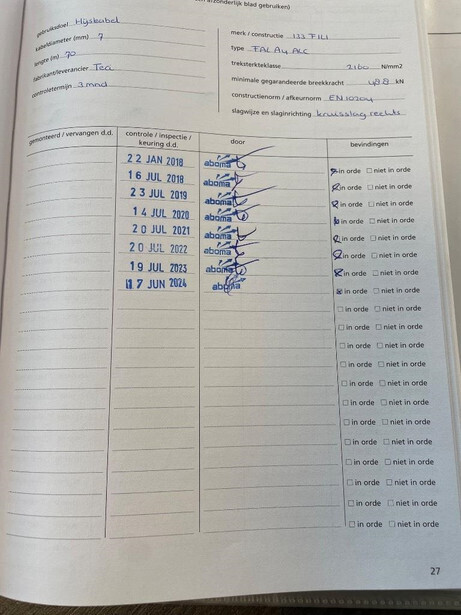 zonderlijk blad gebruiken)
gebruiksdoel Hijskabel
kabeldiameter (mm) 7
lengte (m) 70
fabrikant/leverancier Teci
controletermijn 3 mnd
merk / constructie 133 FILI
type
treksterkteklasse 2160 N/mm2
minimale gegarandeerde breekkracht kN
constructienorm / afkeurnorm EN 10204
slagwijze en slagrichting kruisslag rechts
gemonteerd / vervangen d.d. controle / inspectie / keuring d.d. door bevindingen
22 JAN 2018 aboma in orde niet in orde
16 JUL 2018 aboma in orde niet in orde
23 JUL 2019 aboma in orde niet in orde
14 JUL 2020 aboma in orde niet in orde
20 JUL 2021 aboma in orde niet in orde
20 JUL 2022 aboma in orde niet in orde
19 JUL 2023 aboma in orde niet in orde
17 JUN 2024 aboma in orde niet in orde
in orde niet in orde
in orde niet in orde
in orde niet in orde
in orde niet in orde
in orde niet in orde
in orde niet in orde
in orde niet in orde
in orde niet in orde
in orde niet in orde
in orde niet in orde
in orde niet in orde
in orde niet in orde
27